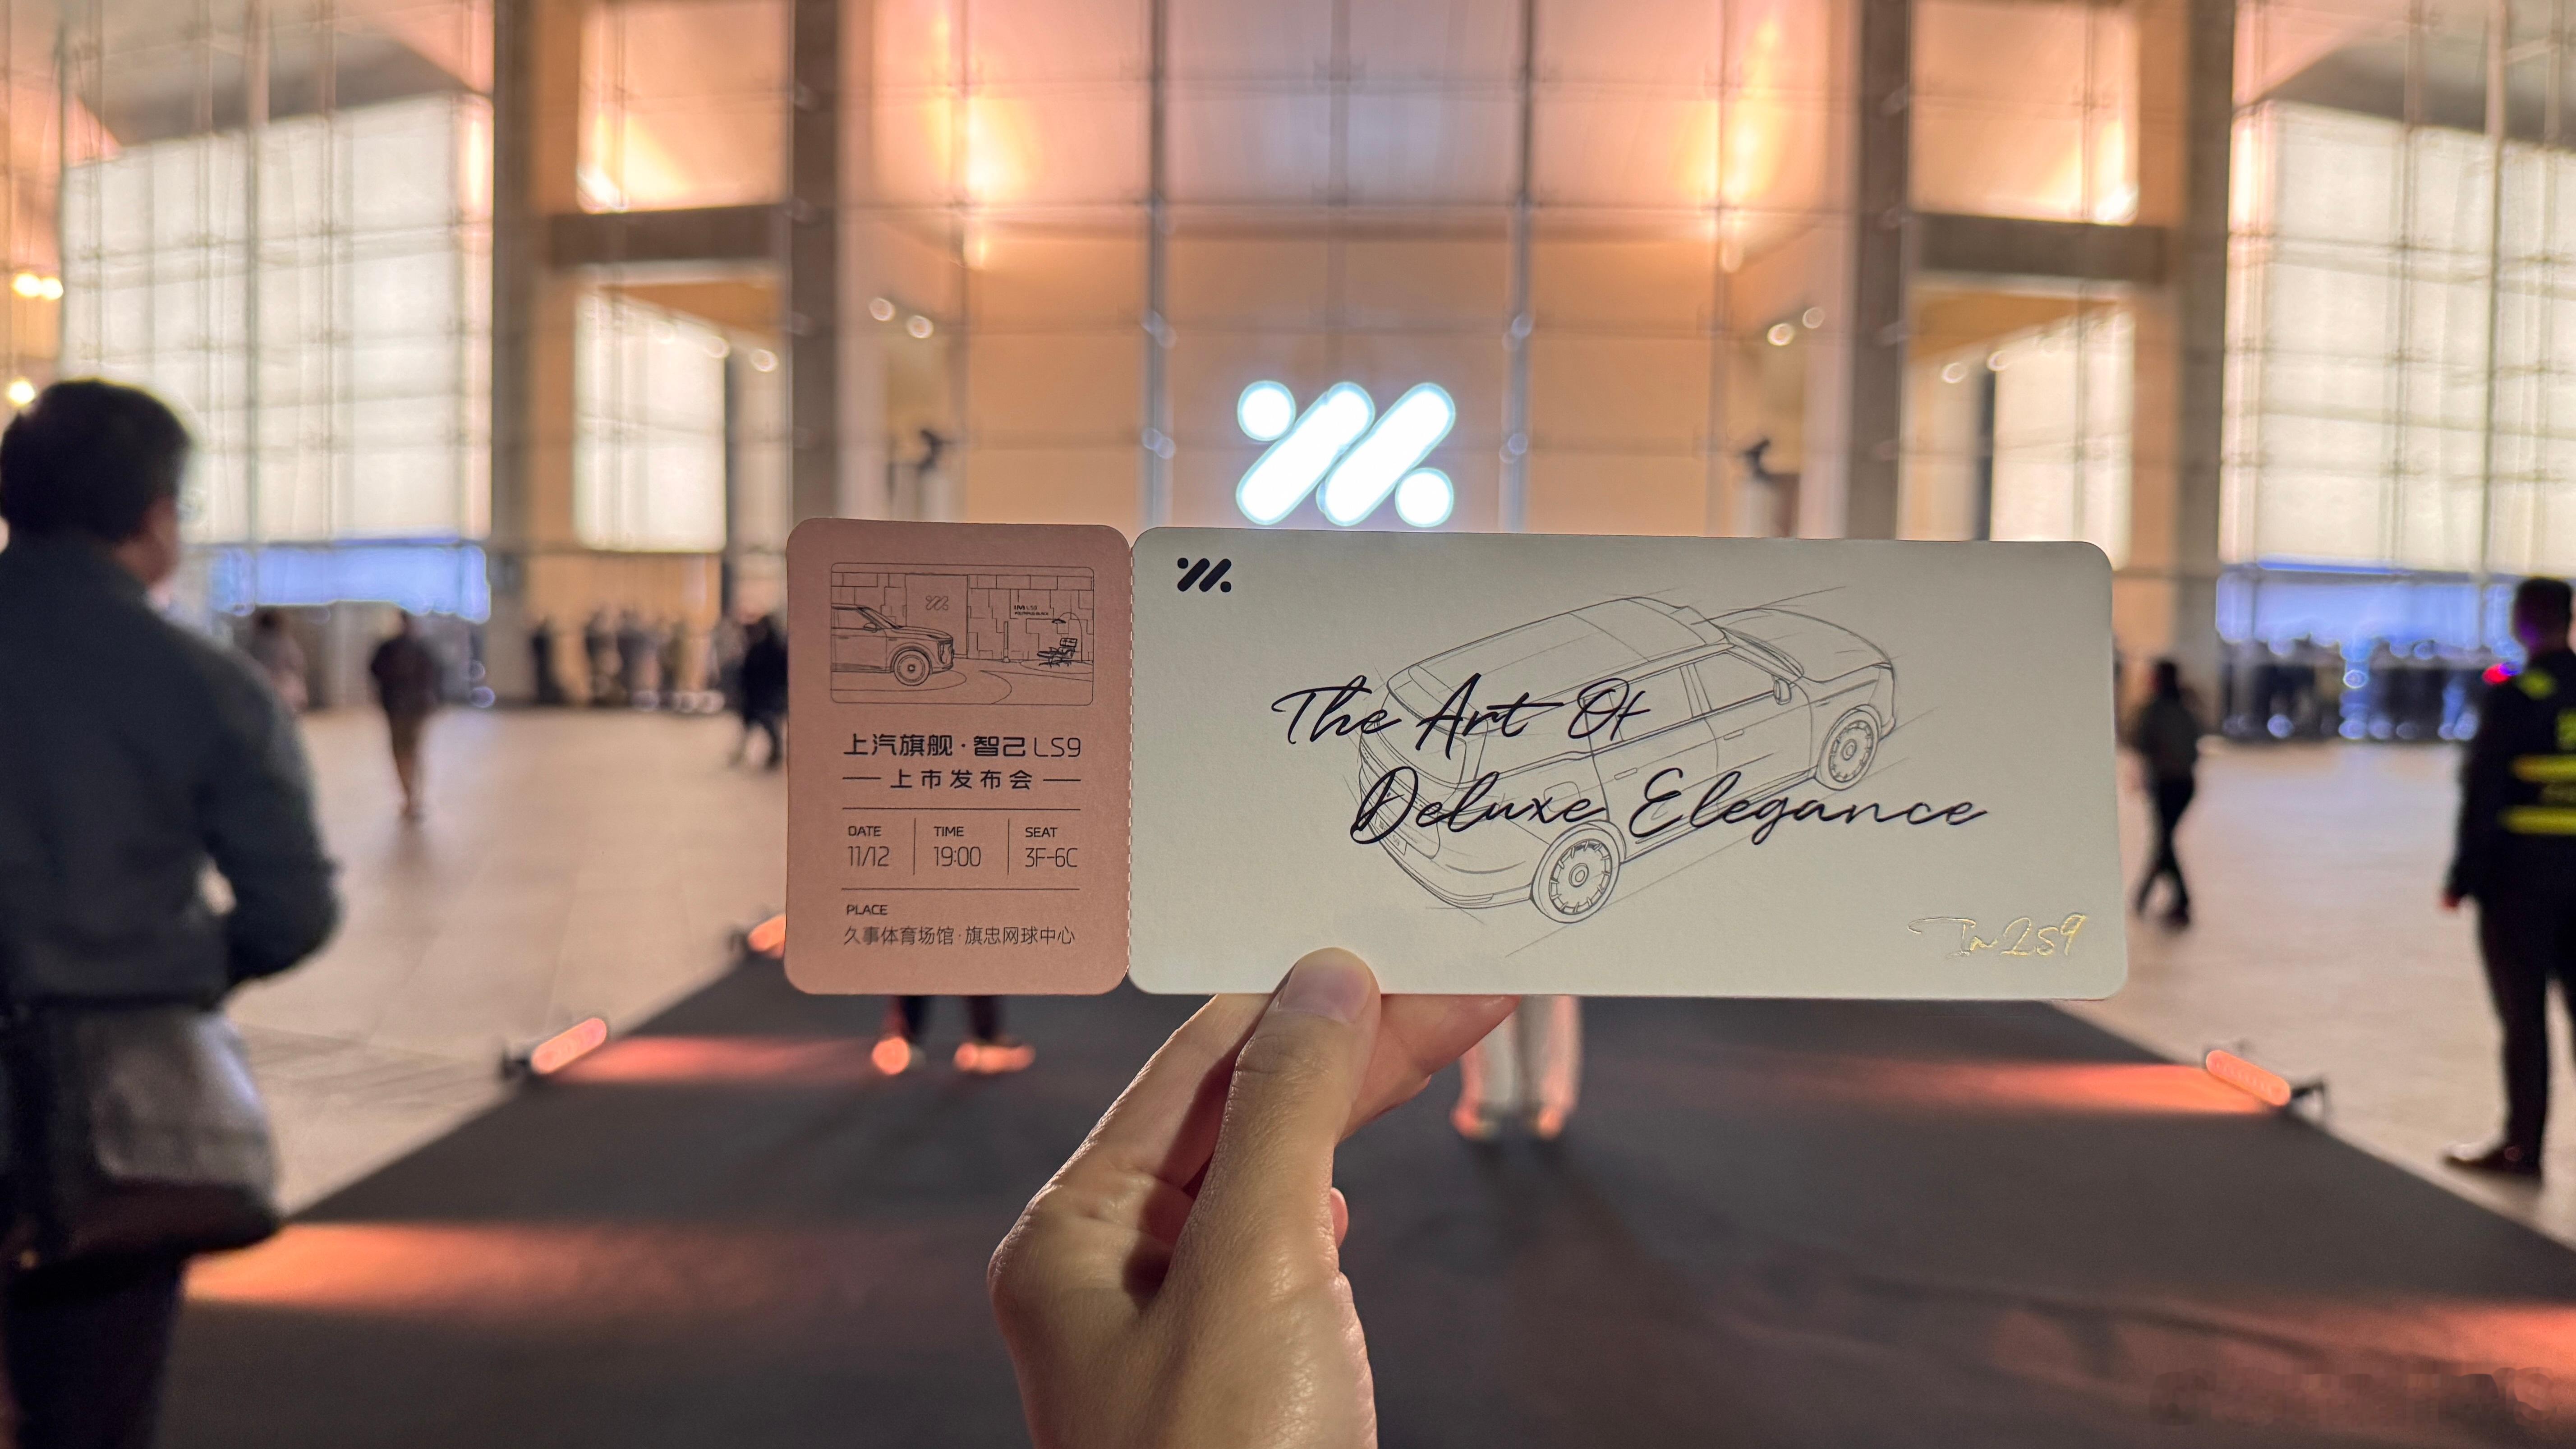 IM LS9
上汽旗舰·智己LS9
上市发布会
DATE
11/12
TIME
19:00
SEAT
3F-6C
PLACE
久事体育场馆·旗忠网球中心
The Art Of
Deluxe Elegance
Im LS9